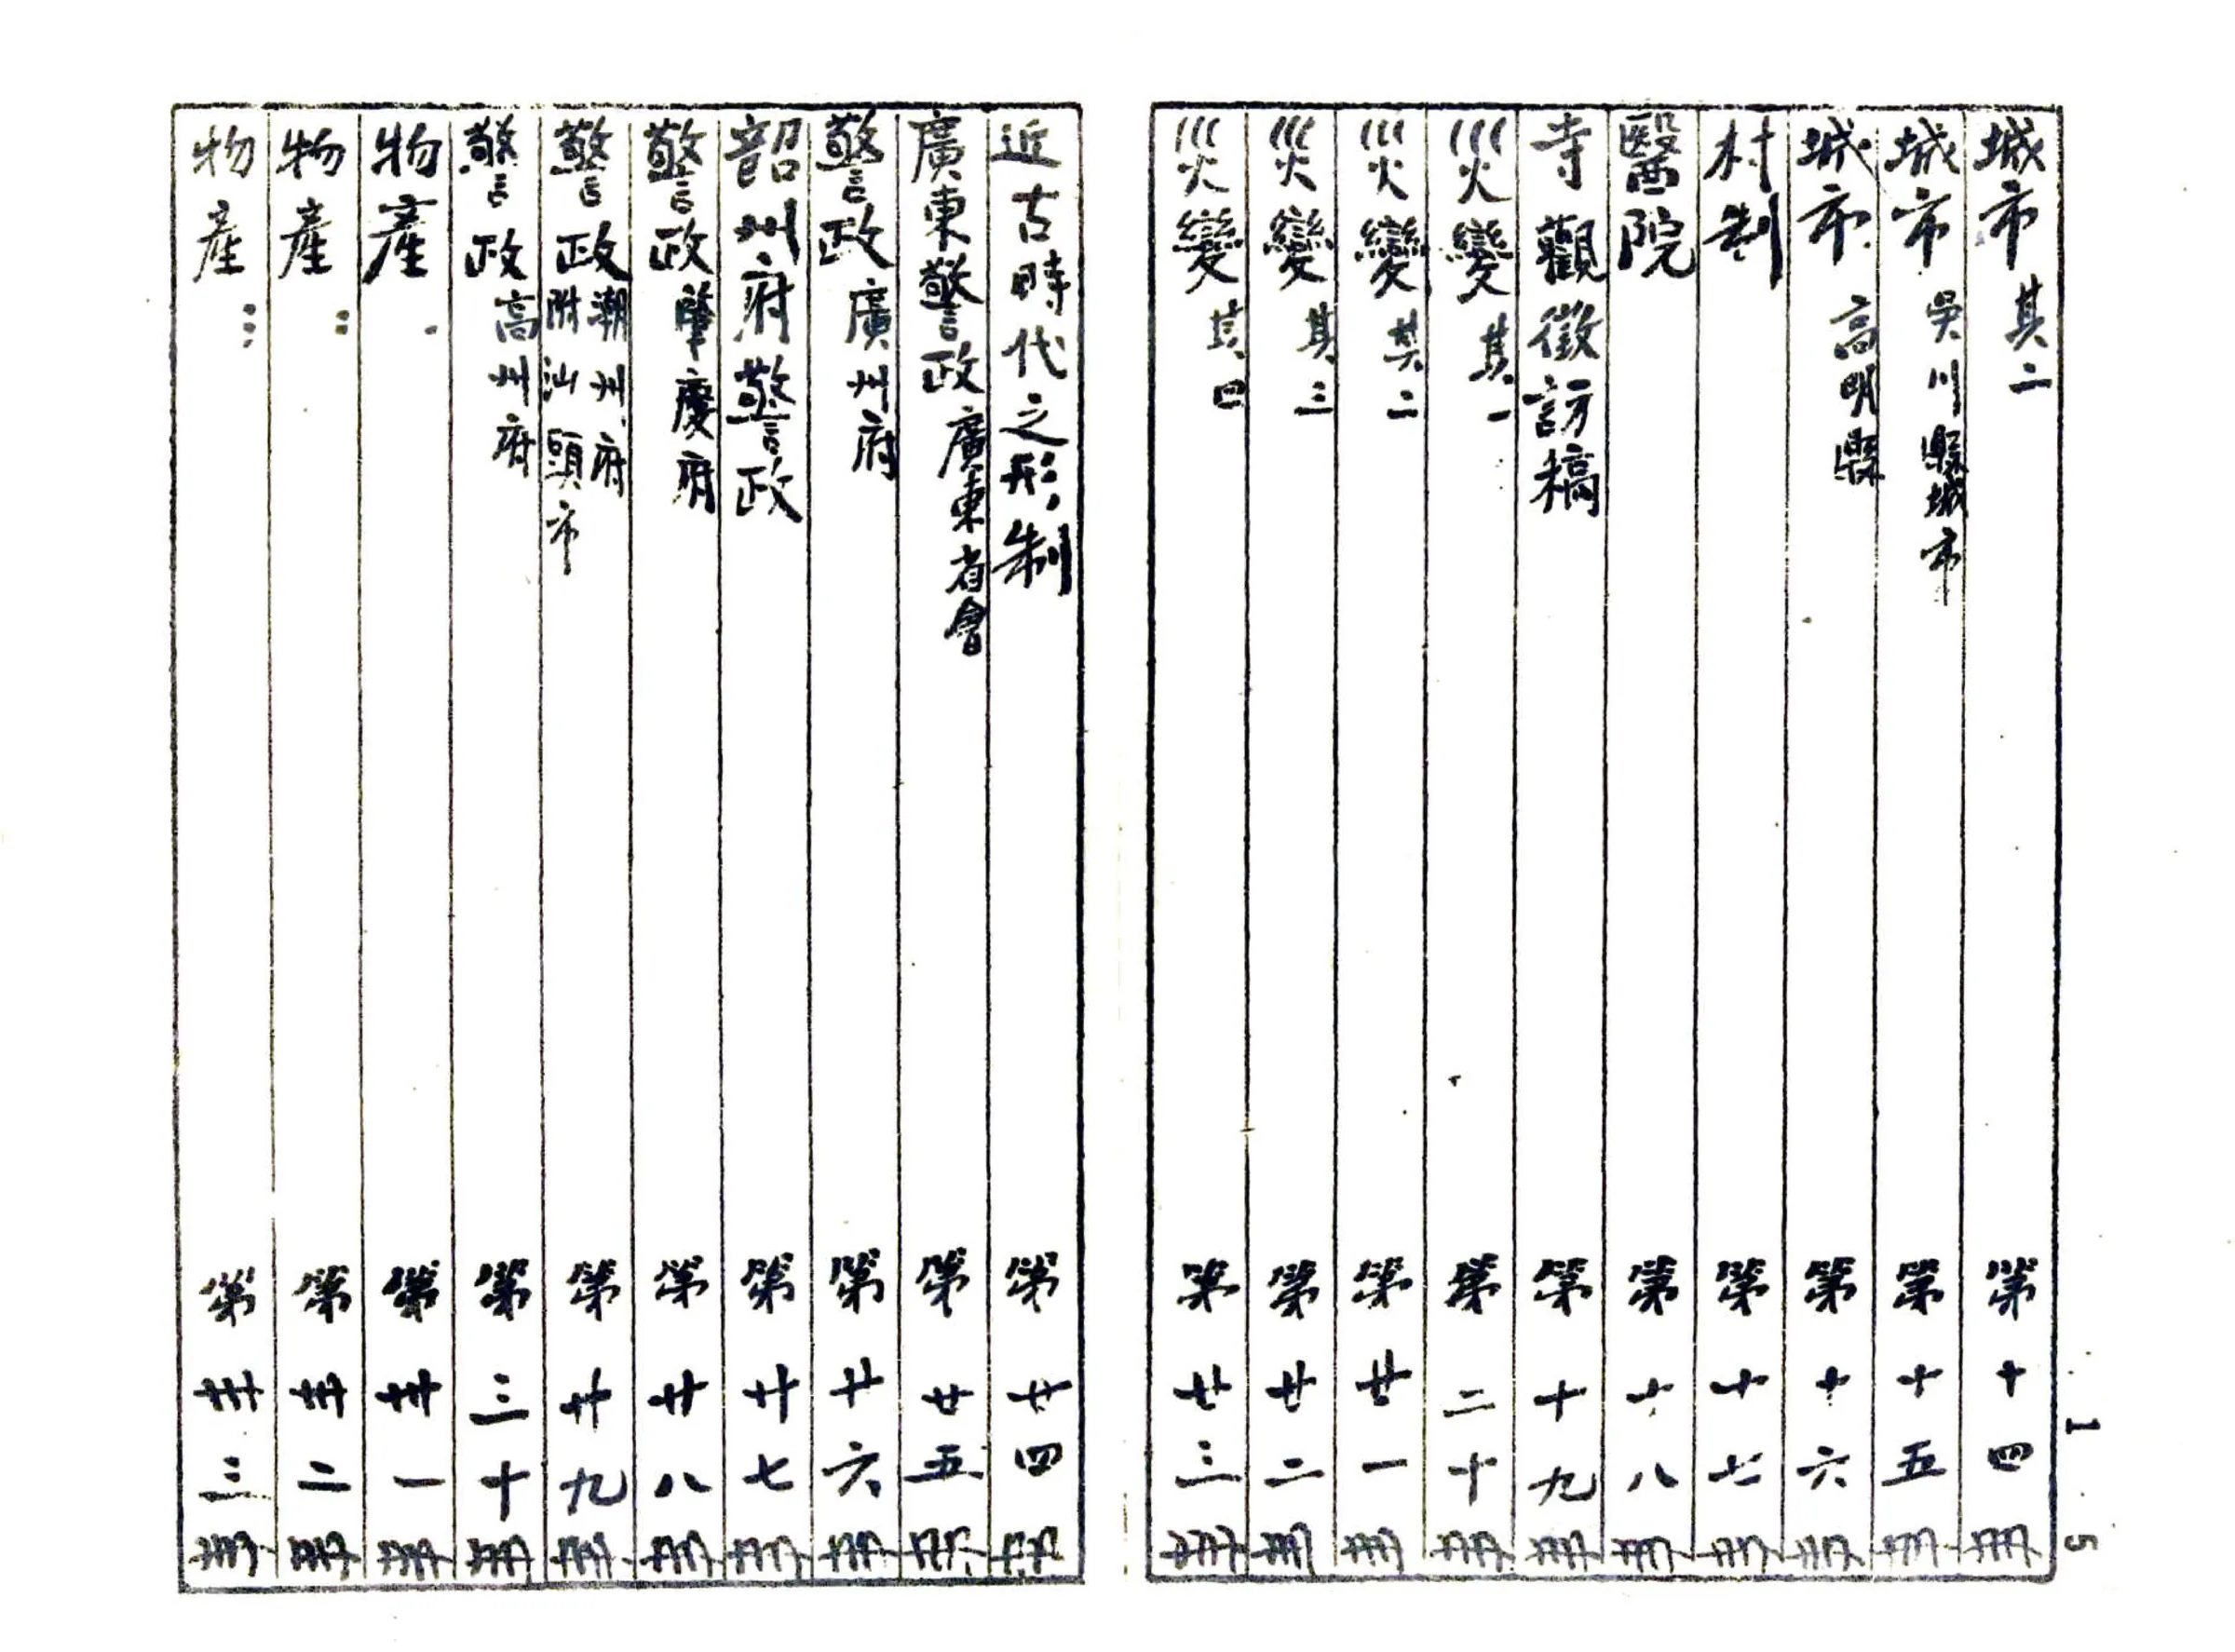 城市 其二 第十四册
城市 吳川縣城市 第十五册
城市 高明縣 第十六册
村制 第十七册
醫院 第十八册
寺觀徵訪稿 第十九册
災變 其一 第二十册
災變 其二 第廿一册
災變 其三 第廿二册
災變 其四 第廿三册
近古時代之形制 第廿四册
廣東警政 廣東省會 第廿五册
警政 廣州府 第廿六册
韶州府警政 第廿七册
警政 肇慶府 第廿八册
警政 潮州府 附汕頭市 第廿九册
警政 高州府 第三十册
物產· 第卅一册
物產: 第卅二册
物產⋮ 第卅三册
1 5